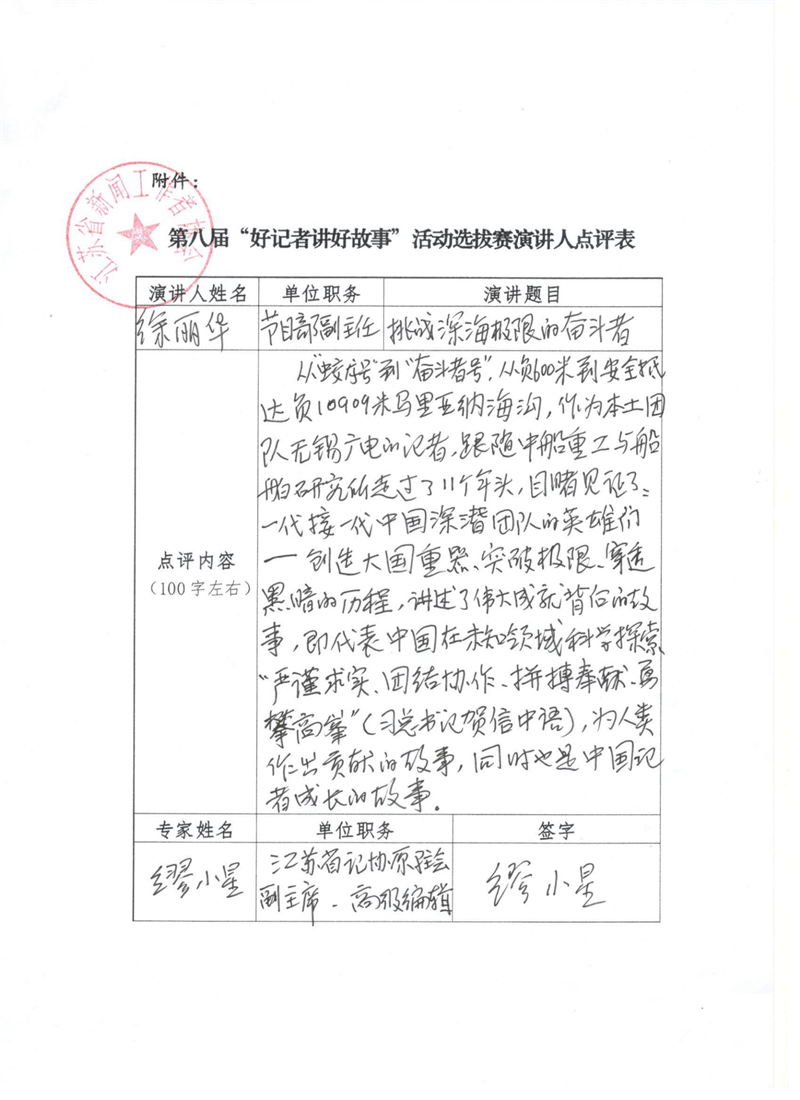 江苏省新闻工作者协会
附件：
第八届“好记者讲好故事”活动选拔赛演讲人点评表
演讲人姓名 单位职务 演讲题目
徐丽华 节目部副主任 挑战深海极限的奋斗者
点评内容
（100字左右）
从“蛟龙号”到“奋斗者号”，从负600米到安全抵
达负10909米马里亚纳海沟，作为本土团
队无锡广电的记者，跟随中船重工与船
舶研究所走过了11个年头，目睹见证了
一代接一代中国深潜团队的英雄们
一创造大国重器、突破极限、穿透
黑暗的历程，讲述了伟大成就背后的故
事，即代表中国在未知领域科学探索
“严谨求实、团结协作、拼搏奉献、勇
攀高峯”（习总书记贺信中语），为人类
作出贡献的故事，同时也是中国记
者成长的故事。
专家姓名 单位职务 签字
缪小星 江苏省记协原驻会 缪小星
副主席、高级编辑